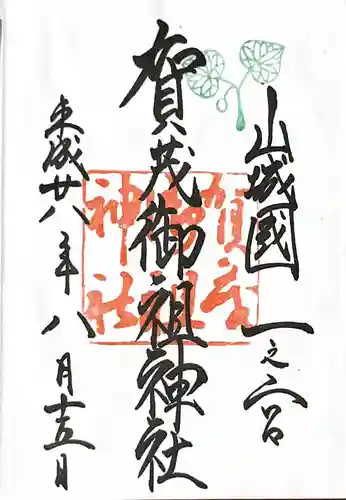 山城國一之宮
賀茂御祖神社
平成廿八年八月十五日
賀茂御祖神社